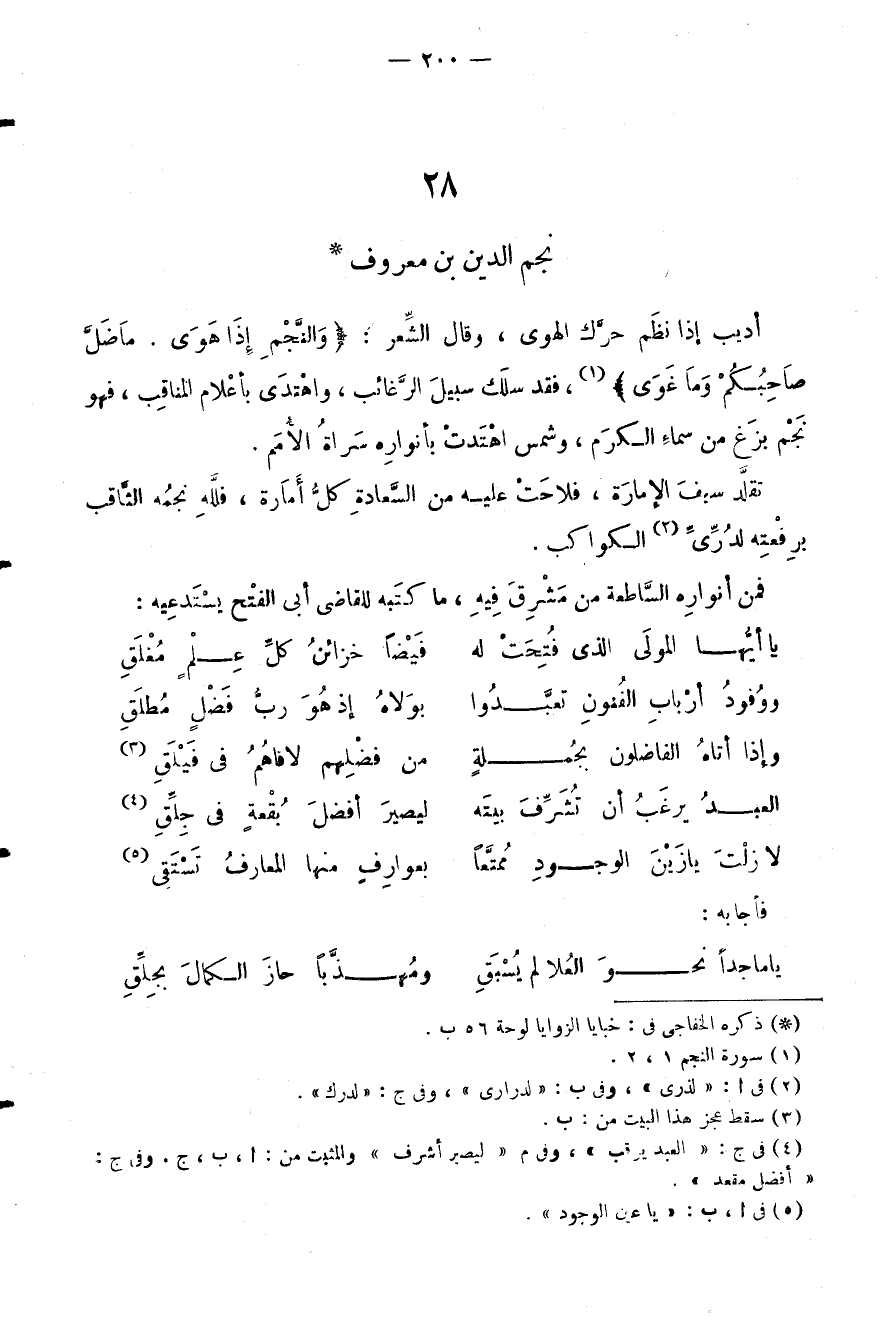 — ٢٠٠ —
٢٨
نجم الدين بن معروف *
أديب إذا نظَم حرَّك الهوى ، وقال الشِّعر : ﴿ وَالنَّجْمِ إِذَا هَوَى . مَاضَلَّ
صَاحِبُكُمْ وَمَا غَوَى ﴾ (١) ، فقد سلَك سبيلَ الرَّغائب ، واهْتدَى بأعْلام المناقِب ، فهو
نَجْم بزَغ من سماءِ الكرَم ، وشمس اهْتَدتْ بأنوارِه سَراةُ الأُمَم .
تقلَّد سيفَ الإمارَة ، فلاحَتْ عليه من السَّعادةِ كلُّ أَمَارة ، فللَّهِ نجمُه الثَّاقب
برِفْعتِه لدُرِّىِّ (٢) الكواكب .
فمن أنوارِه السَّاطعة من مَشْرِقَ فِيهِ ، ما كتَبه للقاضى أبى الفتْح يسْتَدعِيه :
يا أيُّها المولَى الذى فُتِحَتْ له فَيْضاً خزائنُ كلِّ عِلْمٍ مُغْلَقِ
ووُفودُ أرْبابِ الفُنونِ تعبَّدُوا بوَلاهُ إذ هُوَ ربُّ فَضْلٍ مُطلَقِ
وإذا أتاهُ الفاضلون بجُملةٍ من فضْلِهم لافاهُمُ فى فَيْلَقِ (٣)
العبدُ يرغَبُ أن تُشَرِّفَ بيتَه ليصيرَ أفضلَ بُقْعةٍ فى جِلِّقِ (٤)
لا زلْتَ يازَيْنَ الوجودِ مُمتَّعاً بعوارِفٍ منها المعارفُ تَسْتَقِى (٥)
فأجابه :
ياماجداً نحوَ العُلا لم يُسْبَقِ ومُهذَّباً حازَ الكمالَ بجِلِّقِ
(*) ذكره الخفاجى فى : خبايا الزوايا لوحة ٥٦ ب .
(١) سورة النجم ١ ، ٢ .
(٢) فى ا : « لذرى » ، وفى ب : « لدرارى » ، وفى ج : « لدرك » .
(٣) سقط عجز هذا البيت من : ب .
(٤) فى ج : « العبد يرقب » ، وفى م « ليصير أشرف » والمثبت من : ا ، ب ، ج . وفى ج :
« أفضل مقعد » .
(٥) فى ا ، ب : « يا عين الوجود » .